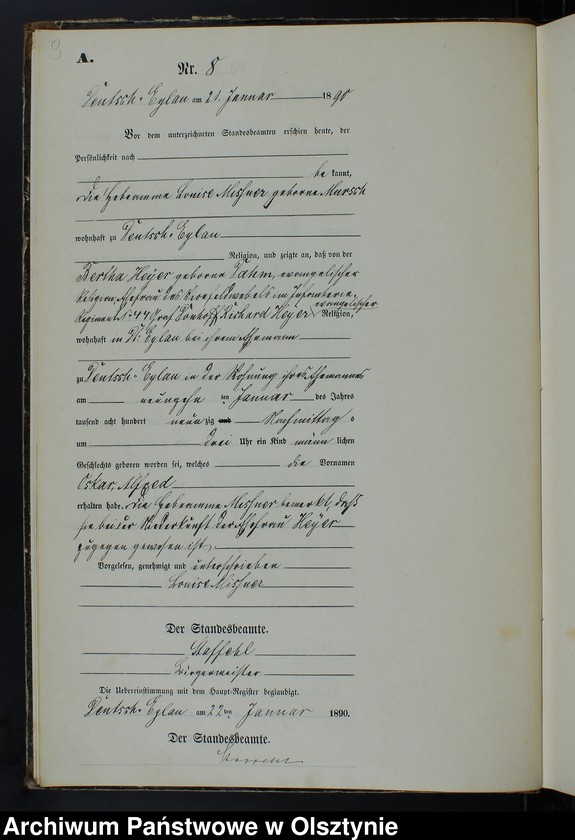 9
A.
Nr. 8
Deutsch-Eylau am 21. Januar 1890
Vor dem unterzeichneten Standesbeamten erschien heute, der
Persönlichkeit nach
be kannt,
die Hebeamme Louise Missner geborne Mursch
wohnhaft zu Deutsch-Eylau
Religion, und zeigte an, daß von der
Bertha Heyer geborne Tatem, evangelischer
Religion, Ehefrau des Vicefeldwebels im Infanterie
evangelischer
Regiment No 44 Graf Dönhoff Richard Heyer Religion,
wohnhaft in Dt. Eylau bei ihrem Ehemann
zu Deutsch-Eylau in der Wohnung ihres Ehemannes
am neunzehn ten Januar des Jahres
tausend acht hundert neunzig und Nachmittag s
um drei Uhr ein Kind männ lichen
Geschlechts geboren worden sei, welches die Vornamen
Oskar Alfred
erhalten habe. Die Hebeamme Missner bemerkt, daß
sie bei der Niederkunft der Ehefrau Heyer
zugegen gewesen ist.
Vorgelesen, genehmigt und unterschrieben
Louise Missner
Der Standesbeamte.
Staffehl
Bürgermeister
Die Uebereinstimmung mit dem Haupt-Register beglaubigt.
Deutsch-Eylau am 22 ten Januar 1890.
Der Standesbeamte.
Archiwum Państwowe w Olsztynie